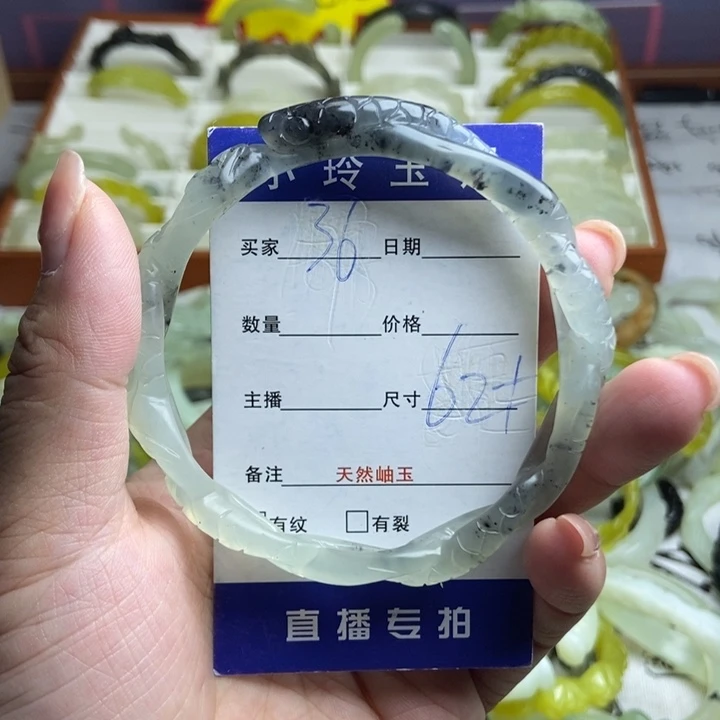 玲玉
买家 36 日期
数量 价格
主播 尺寸 62+
备注 天然岫玉
有纹 □有裂
直播专拍